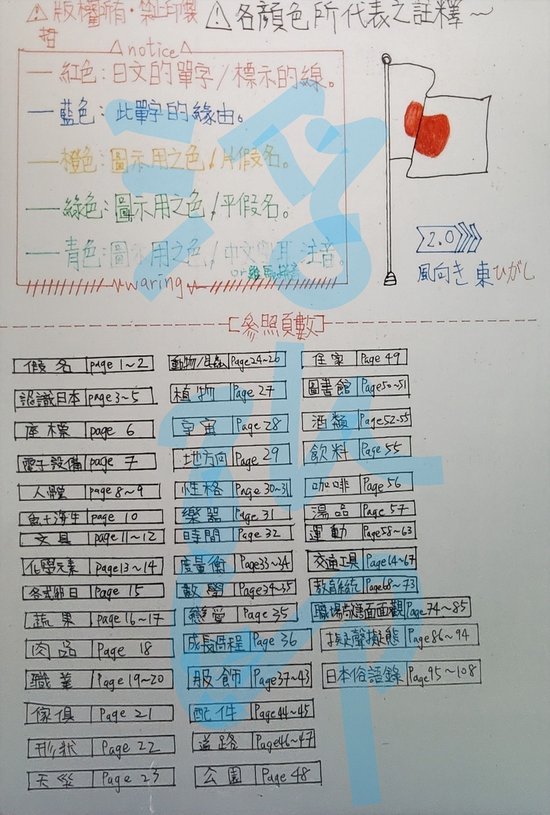 ⚠版權所有・禁止印製
⚠各顏色所代表之註釋～
⚠notice
一紅色：日文的單字/標示的線。
一藍色：此單字的緣由。
一橙色：圖示用之色/片假名。
一綠色：圖示用之色/平假名。
一青色：圖示用之色/中文 注音。
or
waring
2.0
風向き 東ひがし
參照頁數
假名 page 1~2
動物/昆蟲 Page 24~26
住家 Page 49
認識日本 page 3~5
植物 Page 27
圖書館 Page 50~51
座標 page 6
宇宙 Page 28
酒類 Page 52~55
電子設備 page 7
地方向 Page 29
飲料 Page 55
人體 page 8~9
性格 Page 30~31
咖啡 Page 56
魚+海生 page 10
樂器 Page 31
湯品 Page 57
文具 page 11~12
時間 Page 32
運動 Page 58~63
化學元素 Page 13~14
度量衡 Page 33~34
交通工具 Page 64~67
各式節日 Page 15
數學 Page 34~35
教育系統 Page 68~73
蔬果 Page 16~17
戀愛 Page 35
職場 面面觀 Page 74~85
肉品 Page 18
成長過程 Page 36
擬聲擬態 Page 86~94
職業 Page 19~20
服飾 Page 37~43
日本俗語錄 Page 95~108
傢俱 Page 21
配件 Page 44~45
形狀 Page 22
道路 Page 46~47
天災 Page 23
公園 Page 48